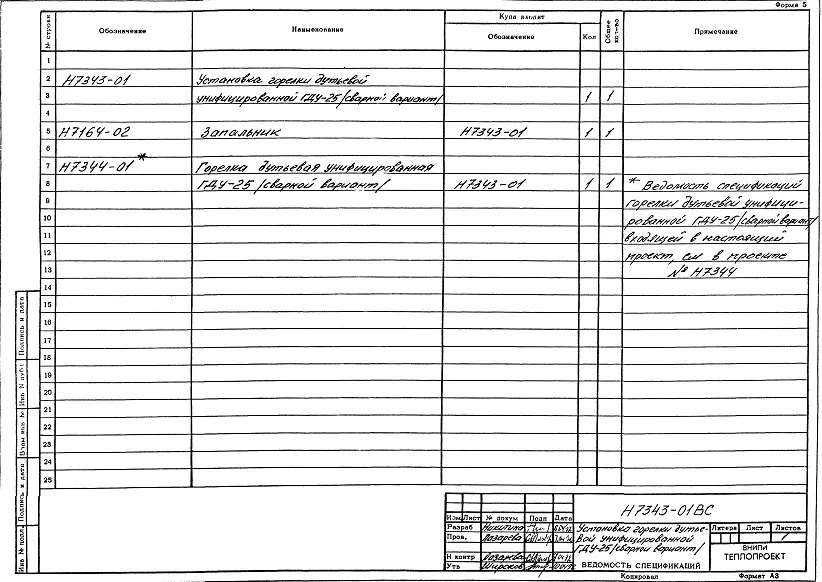 Форма 5
№ строки
Обозначение
Наименование
Куда входит
Обозначение
Кол
Общее кол-во
Примечание
1
2 Н7343-01 Установка горелки дутьевой
3 унифицированной ГДУ-25/сварной вариант/ 1 1
4
5 Н7164-02 Запальник Н7343-01 1 1
6
7 Н7344-01* Горелка дутьевая унифицированная
8 ГДУ-25/сварной вариант/ Н7343-01 1 1 * Ведомость спецификаций
9 горелки дутьевой унифици-
10 рованной ГДУ-25/сварной вариант/
11 входящей в настоящий
12 проект, см в проекте
13 № Н7344
14
15
16
17
18
19
20
21
22
23
24
25
Подпись и дата
Инв N дубл
Взам инв №
Подпись и дата
Инв № подл
Н7343-01ВС
Изм Лист № докум Подп Дата
Разраб Никитина
Пров. Лазарева
Н контр
Утв
Установка горелки дутье-
вой унифицированной
ГДУ-25/сварной вариант/
ВЕДОМОСТЬ СПЕЦИФИКАЦИЙ
Литера Лист Листов
1
ВНИПИ
ТЕПЛОПРОЕКТ
Копировал Формат А3